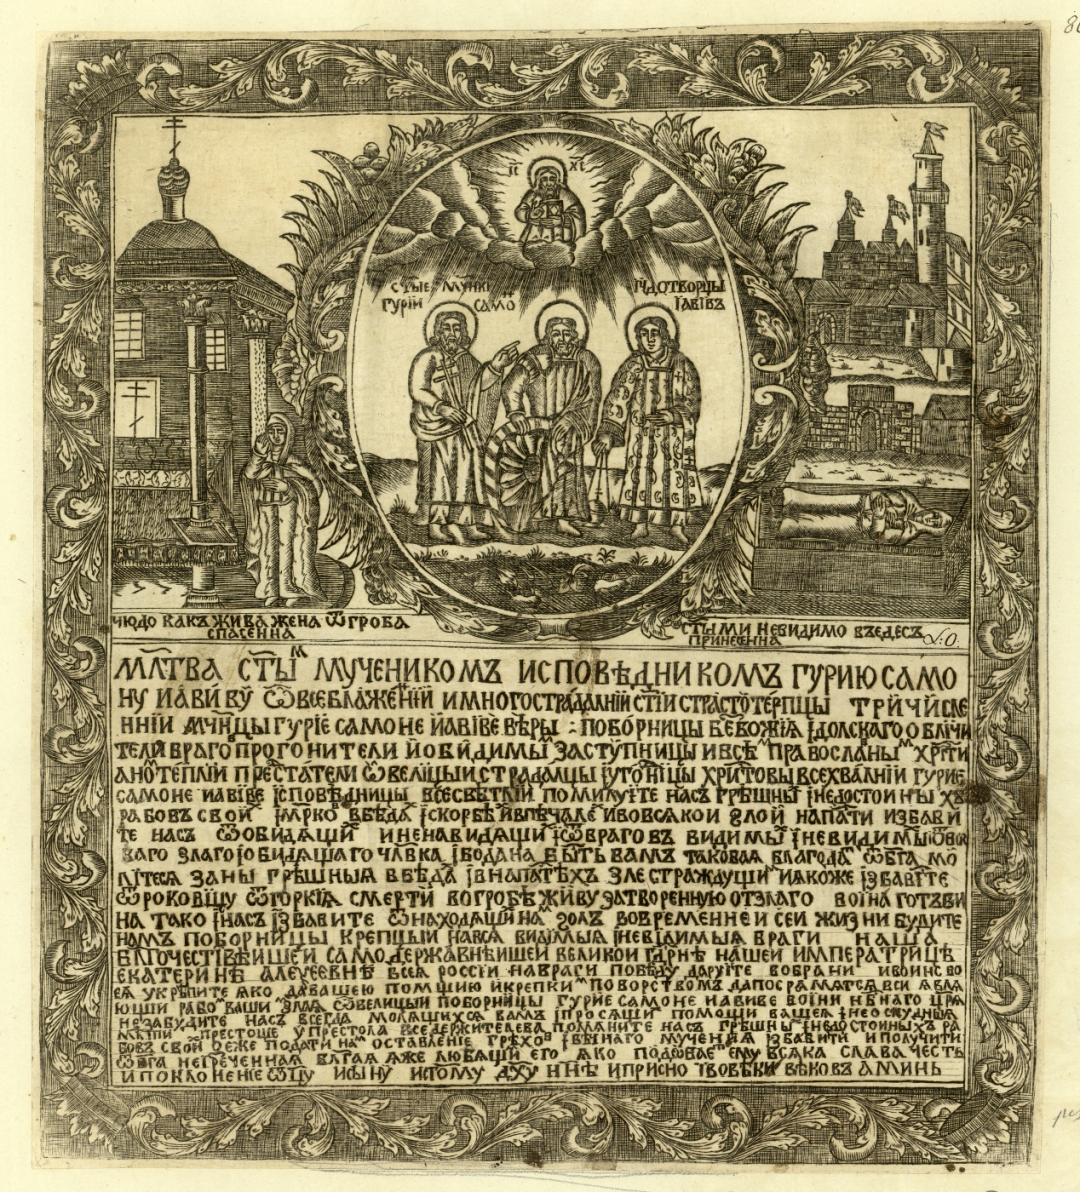 IС ХС
СТЫЕ МУЧНКИ
ГУРІЙ САМО
ЧЮДОТВОРЦЫ
IАВIВЪ
ЧЮДО КАКЪ ЖИВА ЖЕНА Ѿ ГРОБА
СПАСЕННА
СТЫМИ НЕВИДИМО ВЪЕДЕСЪ
ПРИНЕСЕННА
МЛТВА СТЫМ МУЧЕНИКОМЪ ИСПОВѢДНИКОМЪ ГУРИЮ САМО
НУ ИАВИВУ Ѿ ВСЕБЛАЖЕННІЙ И МНОГОСТРАДАЛНІЙ СТІИ СТРАСТОТЕРПЦЫ ТРИЧИСЛЕ
ННІИ МЧНЦЫ ГУРІЕ САМОНЕ ЙАВІВЕ ВѢРЫ ПОБОРНИЦЫ БЕЗБОЖІЯ ІДОЛСКАГО ОБЛИЧИ
ТЕЛИ ВРАГОМ ПРОГОНИТЕЛИ ЙОБИДИМЫ ЗАСТУПНИЦЫ И ВСѢМ ПРАВОСЛАНЫМ ХРТИ
АНОМ ТЕПЛІИ ПРЕСТАТЕЛИ Ѿ ВЕЛИЦЫИ СТРАДАЛЦЫ ІУГОДНИЦЫ ХРИТОВЫ ВСЕХВАЛНІЙ ГУРИЕ
САМОНЕ ИАВІВЕ ІСПОВѢДНИЦЫ ВСЕСВѢТЛІЙ ПОМИЛУІТЕ НАСЪ ГРѢШНЫ ІНЕДОСТОИНЫ ХЪ
РАБОВЪ СВОИ ВБѢДА ІСКОРБѢ ИВПЕЧАЛЕ ИВОВСЯКОИ ЗЛОЙ НАПАТИ ИЗБАВИ
ТЕ НАСЪ ѾОБИДЯЩИ ИНЕНАВИДЯЩИ ІѾВРАГОВЪ ВИДИМЫ ІНЕВИДИМЫ
ЗЛАГО ІОБИДЯЩАГО ЧЛВКА ІБО ДАНА БЫТЬ ВАМЪ ТАКОВАЯ БЛАГОДА ѾБГА МО
ЛІТЕСЯ ЗА НЫ ГРѢШНЫЯ ВБѢДА ІВНАПАТѢХЪ ЗЛЕ СТРАЖДУЩИ ИЯКОЖЕ ІЗБАВІТЕ
ѾРОКОВИЦУ ѾГОРКІЯ СМЕРТИ ВОГРОБѢ ЖИВУ ЗАТВОРЕННУЮ ОТЗЛАГО ВОІНА ГОТЪВИ
НА ТАКО ІНАСЪ ІЗБАВИТЕ ѾНАХОДЯЩИ НА ЗОЛЪ ВОВРЕМЕННЕИ СЕИ ЖИЗНИ БУДИТЕ
НАМЪ ПОБОРНИЦЫ КРЕПЦЫИ НАВСЯ ВИДІМЫЯ ІНЕВІДИМЫЯ ВРАГИ НАША
БЛГОЧЕСТІВѢИШЕЙ САМОДЕРЖАВНѢИШЕИ ВЕЛИКОИ ГДРНѢ НАШЕИ ИМПЕРАТРИЦѢ
ЕКАТЕРИНѢ АЛЕѮЕЕВНѢ ВСЕЯ РОССІИ НАВРАГИ ПОБѢДУ ДАРУІТЕ ВОБРАНИ ИВОИНСВО
ЕЯ УКРѢПИТЕ ЯКО ДА ВАШЕЮ ПОМЩИЮ ИКРЕПКИМ ПОБОРСТВОМЪ ДАПОСРАМЯТСЯ ВСИ ЯВЛЯ
ЮЩИ РАБОМ ВАШИ ЗЛАЯ Ѿ ВЕЛИЦЫИ ПОБОРНИЦЫ ГУРИЕ САМОНЕ ИАВИВЕ ВОІНИ НБНАГО ЦРЯ
НЕЗАБУДИТЕ НАСЪ ВСЕГДА МОЛЯЩИХСЯ ВАМЪ ІПРОСЯЩИ ПОМОЩИ ВАШЕЯ ІНЕОСКУДНЫЯ
ПРЕСТОЩЕ УПРЕСТОЛА ВСЕДЕРЖИТЕЛЕВА ПОМЯНИТЕ НАСЪ ГРѢШНЫ ІНЕДОСТОИННЫХЪ РА
БОВЪ СВОИ ЕЖЕ ПОДАТИ НАМ ОСТАВЛЕНІЕ ГРѢХОВ ІВѢЧНАГО МУЧЕНИЯ ІЗБАВИТИ ИПОЛУЧИТИ
ѾБГА НЕІЗРЕЧЕННАЯ БЛГАЯ ЯЖЕ ЛЮБЯЩИ ЕГО ЯКО ПОДОБАЕТ ЕМУ ВСЯКА СЛАВА ЧЕСТЬ
ИПОКЛОНЕНІЕ ѾЦУ ИСЫНУ ИСТОМУ ДХУ ННѢ ИПРИСНО ІВОВѢКИ ВѢКОВЪ АМИНЬ